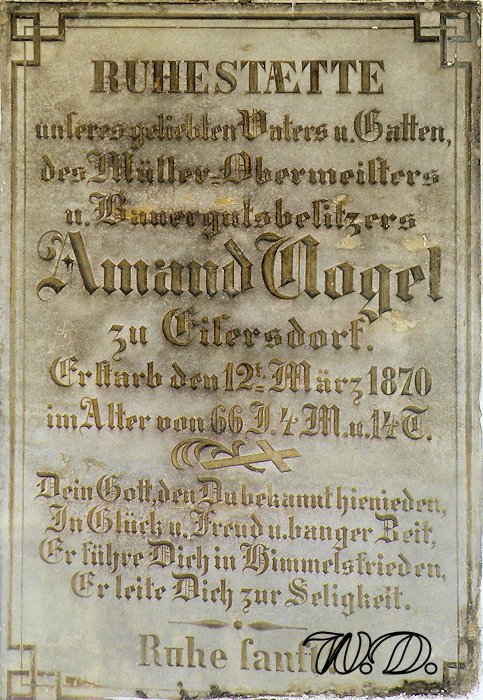 RUHESTÆTTE
unseres geliebten Vaters u. Gatten,
des Müller-Obermeisters
u. Bauergutsbesitzers
Amand Vogel
zu Eisersdorf.
Er starb den 12t. März 1870
im Alter von 66 J. 4 M. u. 14 T.
Dein Gott, den Du bekannt hienieden,
In Glück u. Freud u. banger Zeit,
Er führe Dich in Himmelsfrieden,
Er leite Dich zur Seligkeit.
Ruhe sanft.
W. D.